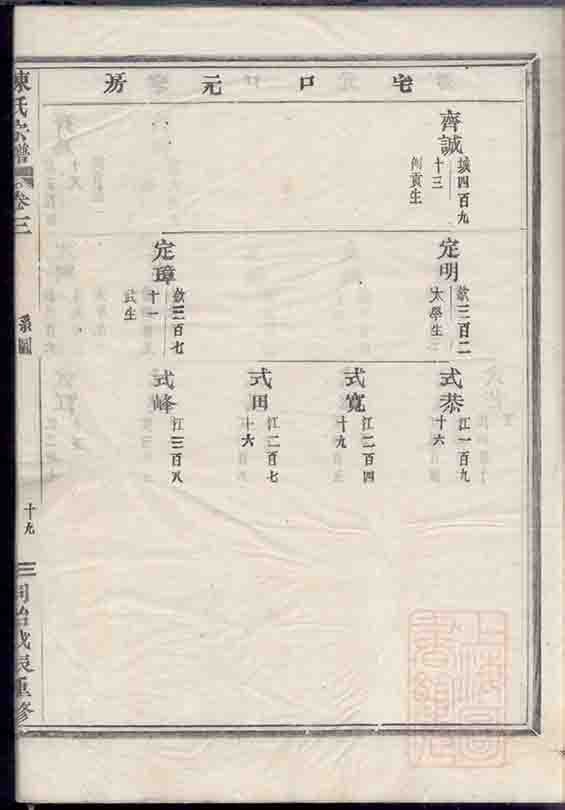 宅口元房
齊誠
坱四百九
十三
例貢生
定明
欽三百二
太學生
定璋
欽三百七
十一
武生
式恭
江一百九
十六
式寬
江二百四
十九
式田
江二百七
十六
式峰
江三百八
陳氏宗譜
卷三
系圖
十九
同治戊辰重修
上海圖
書館藏